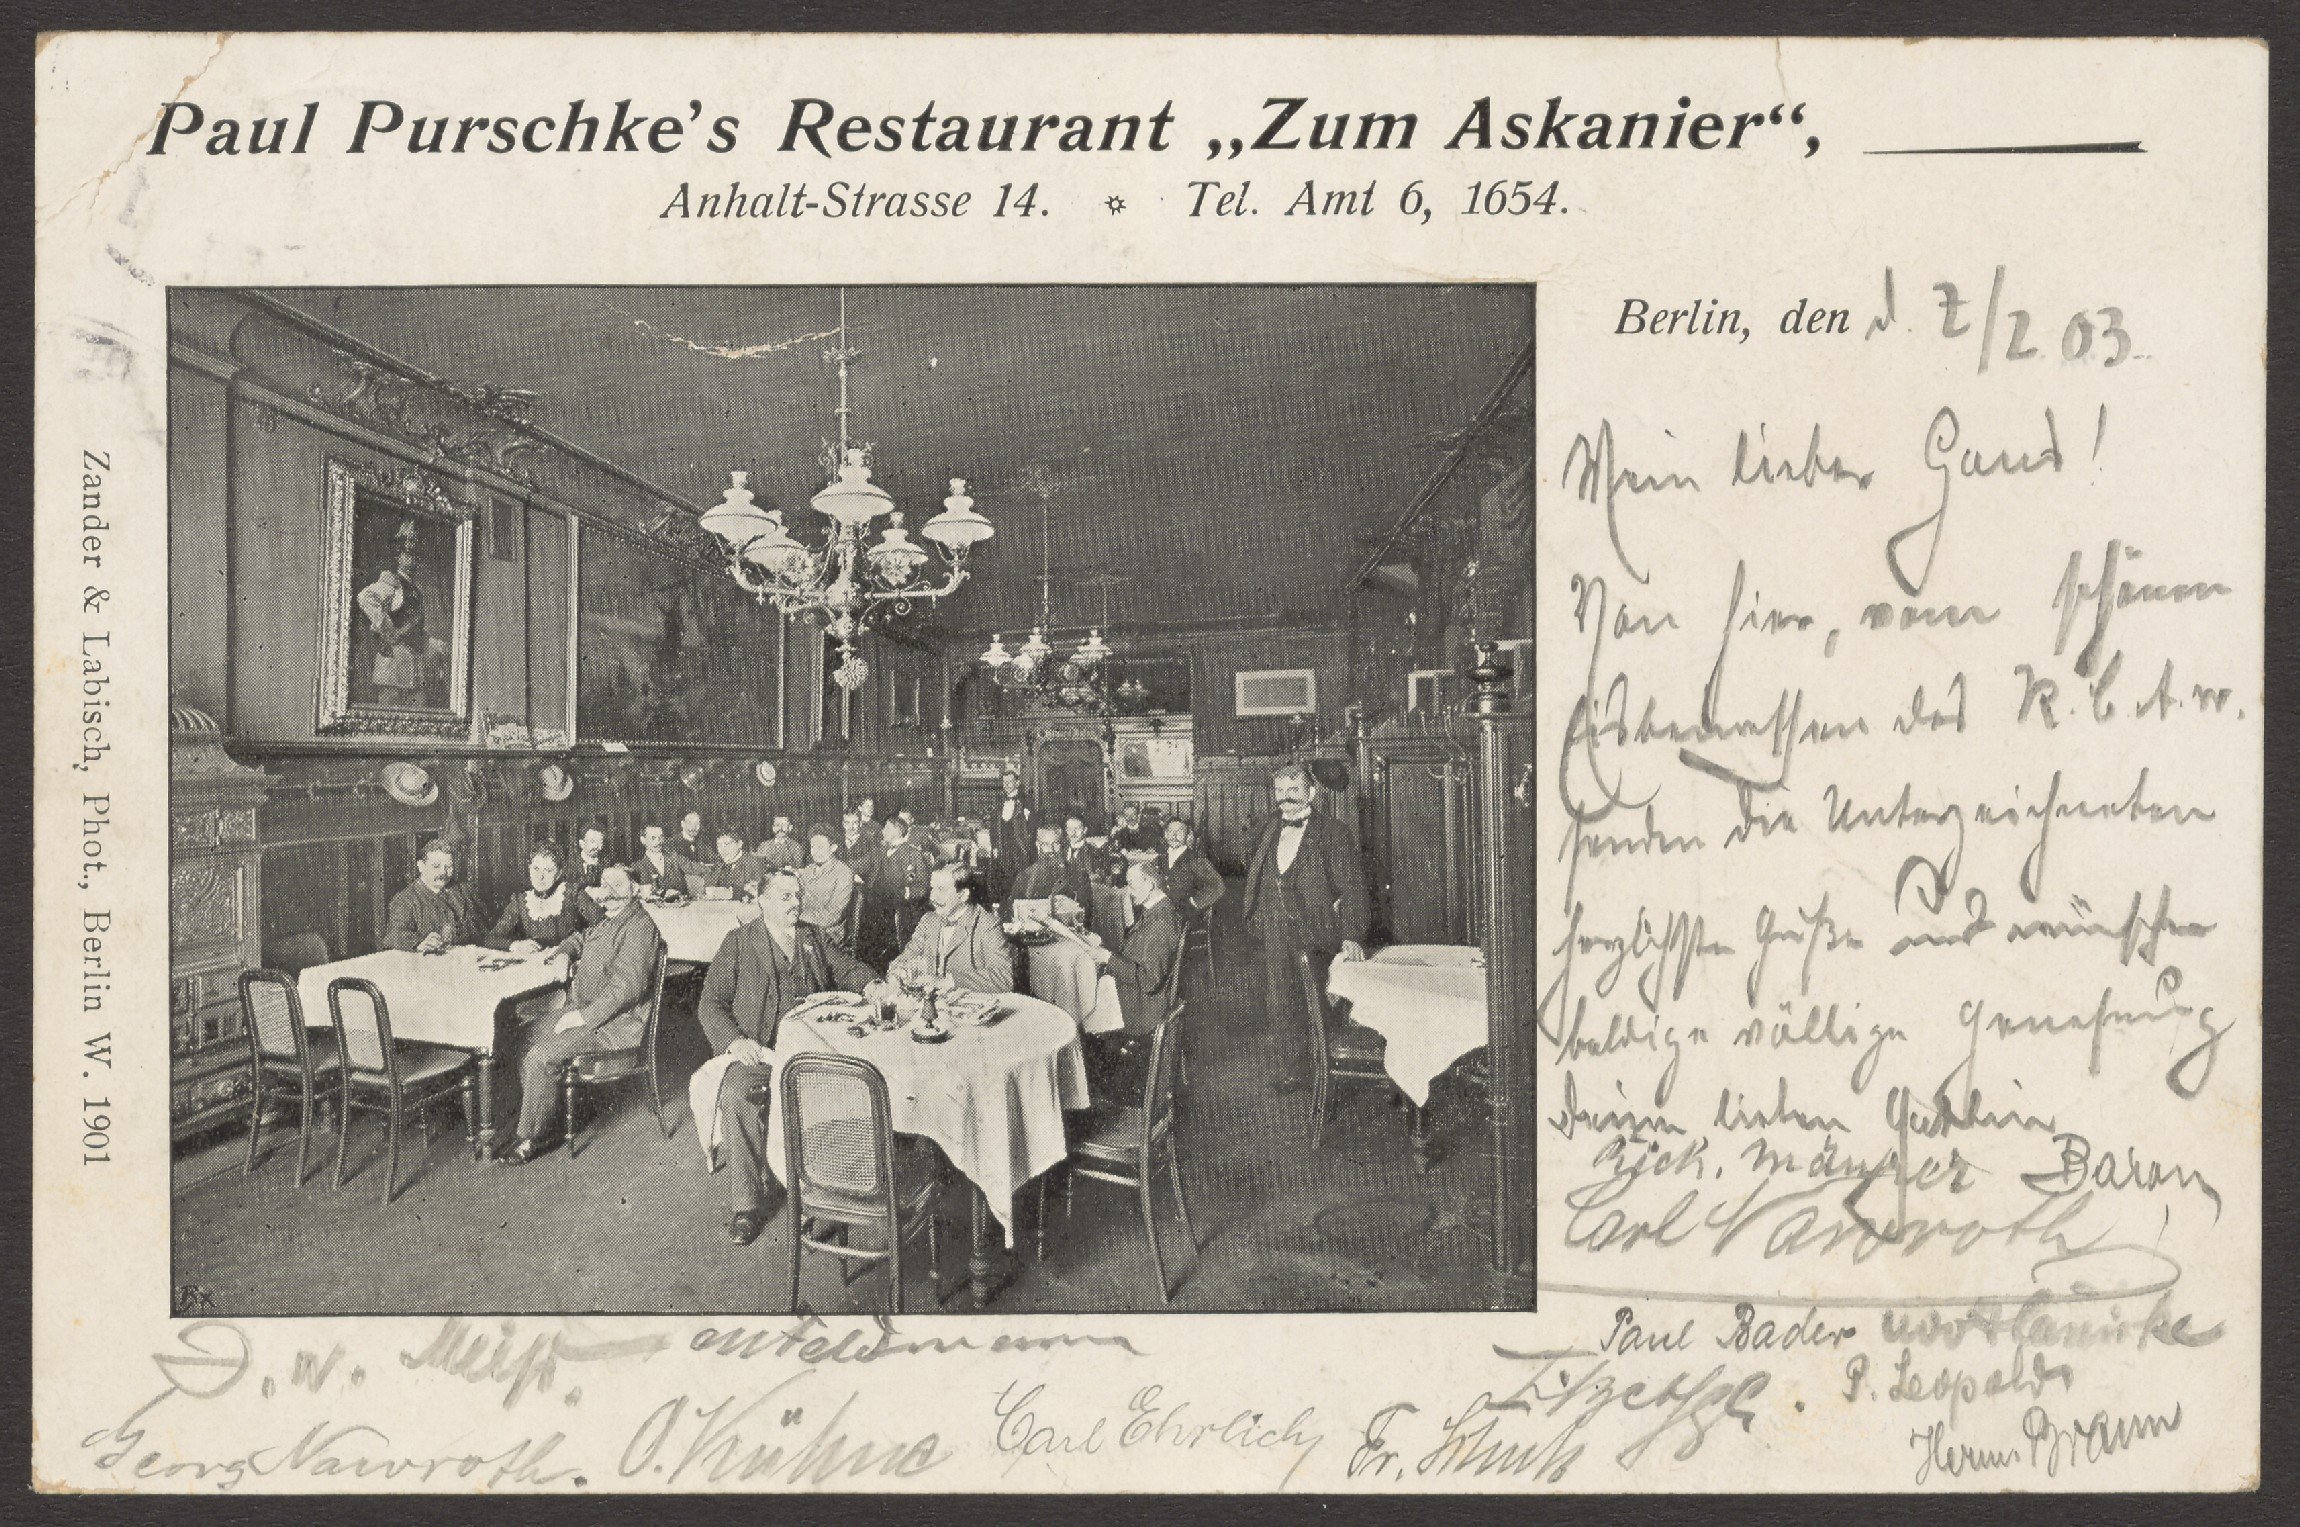 Paul Purschke's Restaurant „Zum Askanier“,
Anhalt-Strasse 14. ☼ Tel. Amt 6, 1654.
Berlin, den d. 7/2 03
Mein lieber
Von hier, vom schönen
des R. C. A. W.
senden die Unterzeichneten
herzlichste Grüße und wünschen
baldige völlige Genesung
deiner lieben Gattin
Baron
Carl Nawroth
Paul Bader
P. Leopold
Herm. Braun
Georg Nawroth. O. Kühne Carl Ehrlich Fr.
Zander & Labisch, Phot., Berlin W. 1901